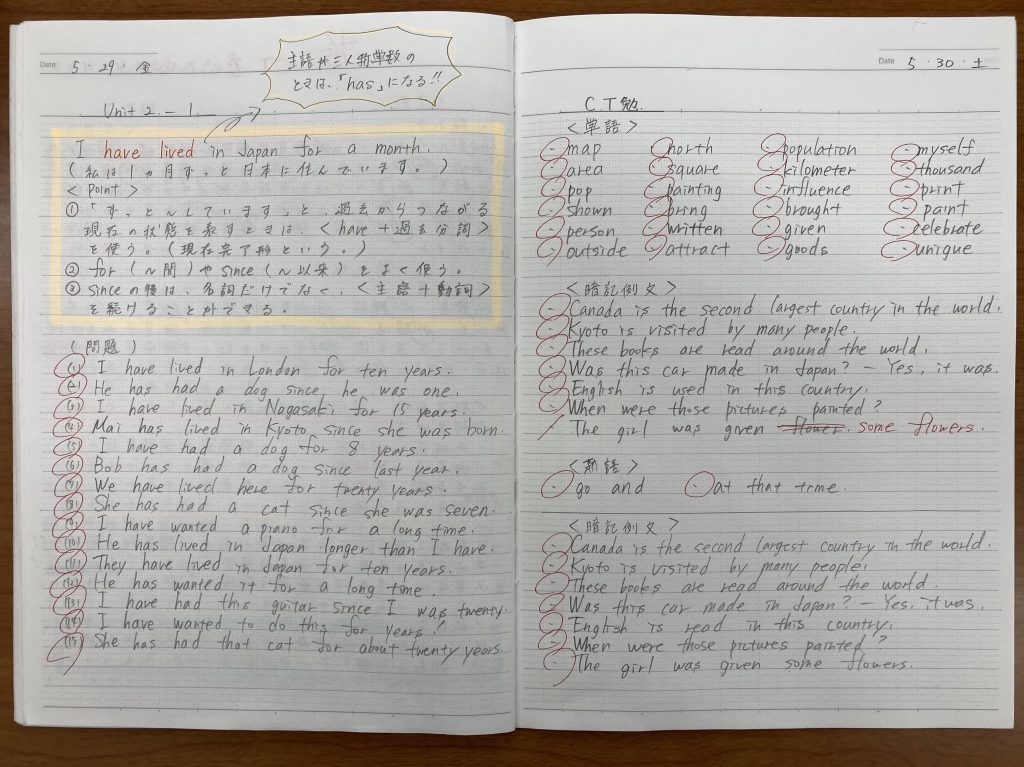 Date 5・29・金
主語が三人称単数の
ときは、「has」になる!!
Unit 2 - 1
I have lived in Japan for a month.
(私は1か月ずっと日本に住んでいます。)
<Point>
① 「ずっと~しています」と、過去からつながる
現在の状態を表すときは、<have+過去分詞>
を使う。(現在完了形という。)
② for(~間)やsince(~以来)をよく使う。
③ sinceの後は、名詞だけでなく、<主語+動詞>
を続けることができる。
(問題)
(1) I have lived in London for ten years.
(2) He has had a dog since he was one.
(3) I have lived in Nagasaki for 15 years.
(4) Mai has lived in Kyoto since she was born.
(5) I have had a dog for 8 years.
(6) Bob has had a dog since last year.
(7) We have lived here for twenty years.
(8) She has had a cat since she was seven.
(9) I have wanted a piano for a long time.
(10) He has lived in Japan longer than I have.
(11) They have lived in Japan for ten years.
(12) He has wanted it for a long time.
(13) I have had this guitar since I was twenty.
(14) I have wanted to do this for years!
(15) She has had that cat for about twenty years.
Date 5・30・土
C.T勉.
<単語>
・map ・north ・population ・myself
・area ・square ・kilometer ・thousand
・pop ・painting ・influence ・print
・shown ・bring ・brought ・paint
・person ・written ・given ・celebrate
・outside ・attract ・goods ・unique
<暗記例文>
・Canada is the second largest country in the world.
・Kyoto is visited by many people.
・These books are read around the world.
・Was this car made in Japan? - Yes, it was.
・English is used in this country.
・When were those pictures painted?
The girl was given flower. some flowers.
<熟語>
・go and ・at that time.
<暗記例文>
・Canada is the second largest country in the world.
・Kyoto is visited by many people.
・These books are read around the world.
・Was this car made in Japan? - Yes, it was.
・English is read in this country.
・When were those pictures painted?
・The girl was given some flowers.